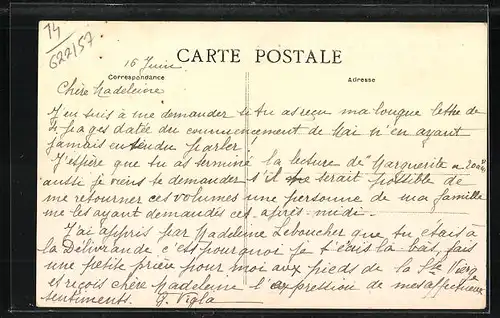 14
622157
CARTE POSTALE
16 Juin
Correspondance
Adresse
Chère Madeleine
J'en suis à me demander si tu as reçu ma longue lettre de
4 pages datée du commencement de Mai n'en ayant
jamais entendu parler!
J'espère que tu as terminé la lecture de Marguerite à 20 ans
aussi je viens te demander s'il te serait possible de
me retourner ces volumes une personne de ma famille
me les ayant demandés ces après-midi.
J'ai appris par Madeleine Leboucher que tu étais à
la Délivrande c'est pourquoi je t'écris là bas, fais
une petite prière pour moi aux pieds de la Ste Vierge
et reçois chère Madeleine l'expression de mes affectueux
sentiments. G. Vigla